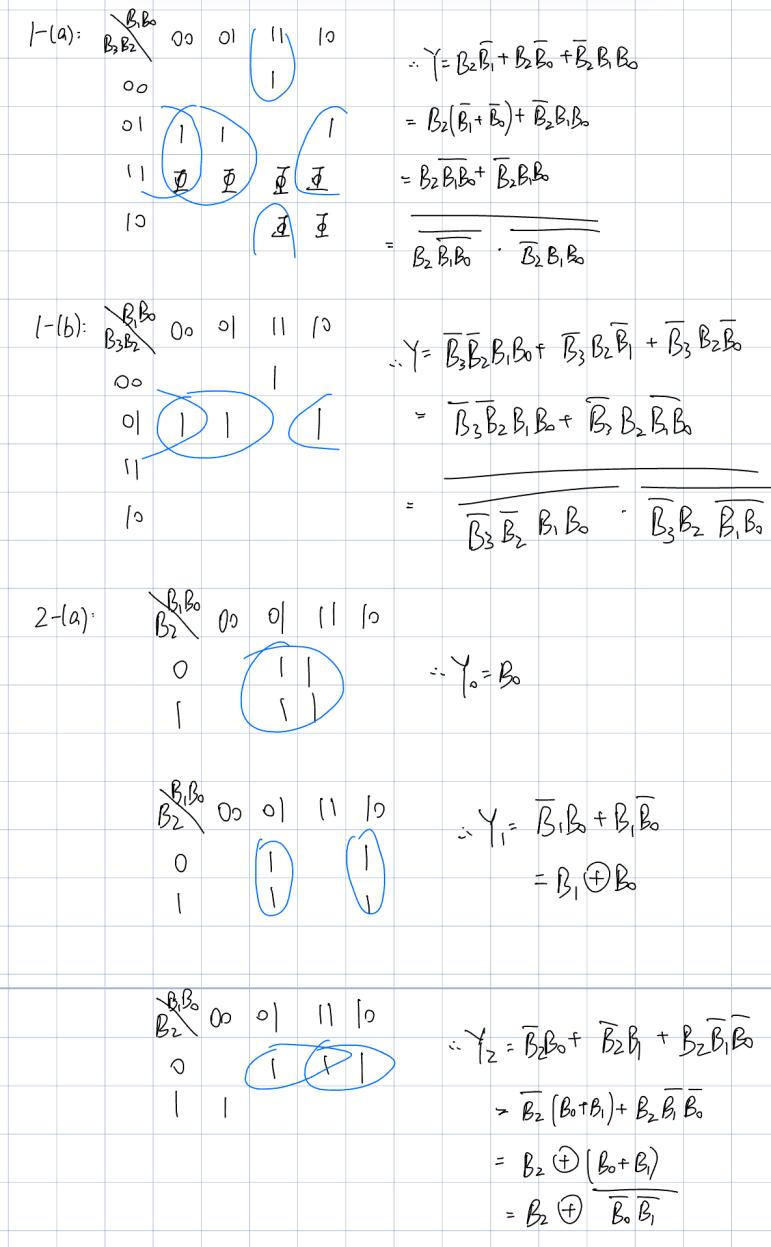 1-(a): B₃B₂\B₁B₀ 00 01 11 10
00 1
01 1 1 1
11 Φ Φ Φ Φ
10 Φ Φ
∴ Y = B₂B̅₁ + B₂B̅₀ + B̅₂B₁B₀
= B₂(B̅₁ + B̅₀) + B̅₂B₁B₀
= B₂\overline{B₁B₀} + B̅₂B₁B₀
= \overline{\overline{B₂\overline{B₁B₀}} · \overline{B̅₂B₁B₀}}
1-(b): B₃B₂\B₁B₀ 00 01 11 10
00 1
01 1 1 1
11
10
∴ Y = B̅₃B̅₂B₁B₀ + B̅₃B₂B̅₁ + B̅₃B₂B̅₀
= B̅₃B̅₂B₁B₀ + B̅₃B₂\overline{B₁B₀}
= \overline{\overline{B̅₃B̅₂B₁B₀} · \overline{B̅₃B₂\overline{B₁B₀}}}
2-(a): B₂\B₁B₀ 00 01 11 10
0 1 1
1 1 1
∴ Y₀ = B₀
B₂\B₁B₀ 00 01 11 10
0 1 1
1 1 1
∴ Y₁ = B̅₁B₀ + B₁B̅₀
= B₁ ⊕ B₀
B₂\B₁B₀ 00 01 11 10
0 1 1 1
1 1
∴ Y₂ = B̅₂B₀ + B̅₂B₁ + B₂B̅₁B̅₀
= B̅₂(B₀+B₁) + B₂B̅₁B̅₀
= B₂ ⊕ (B₀+B₁)
= B₂ ⊕ \overline{B̅₀B̅₁}